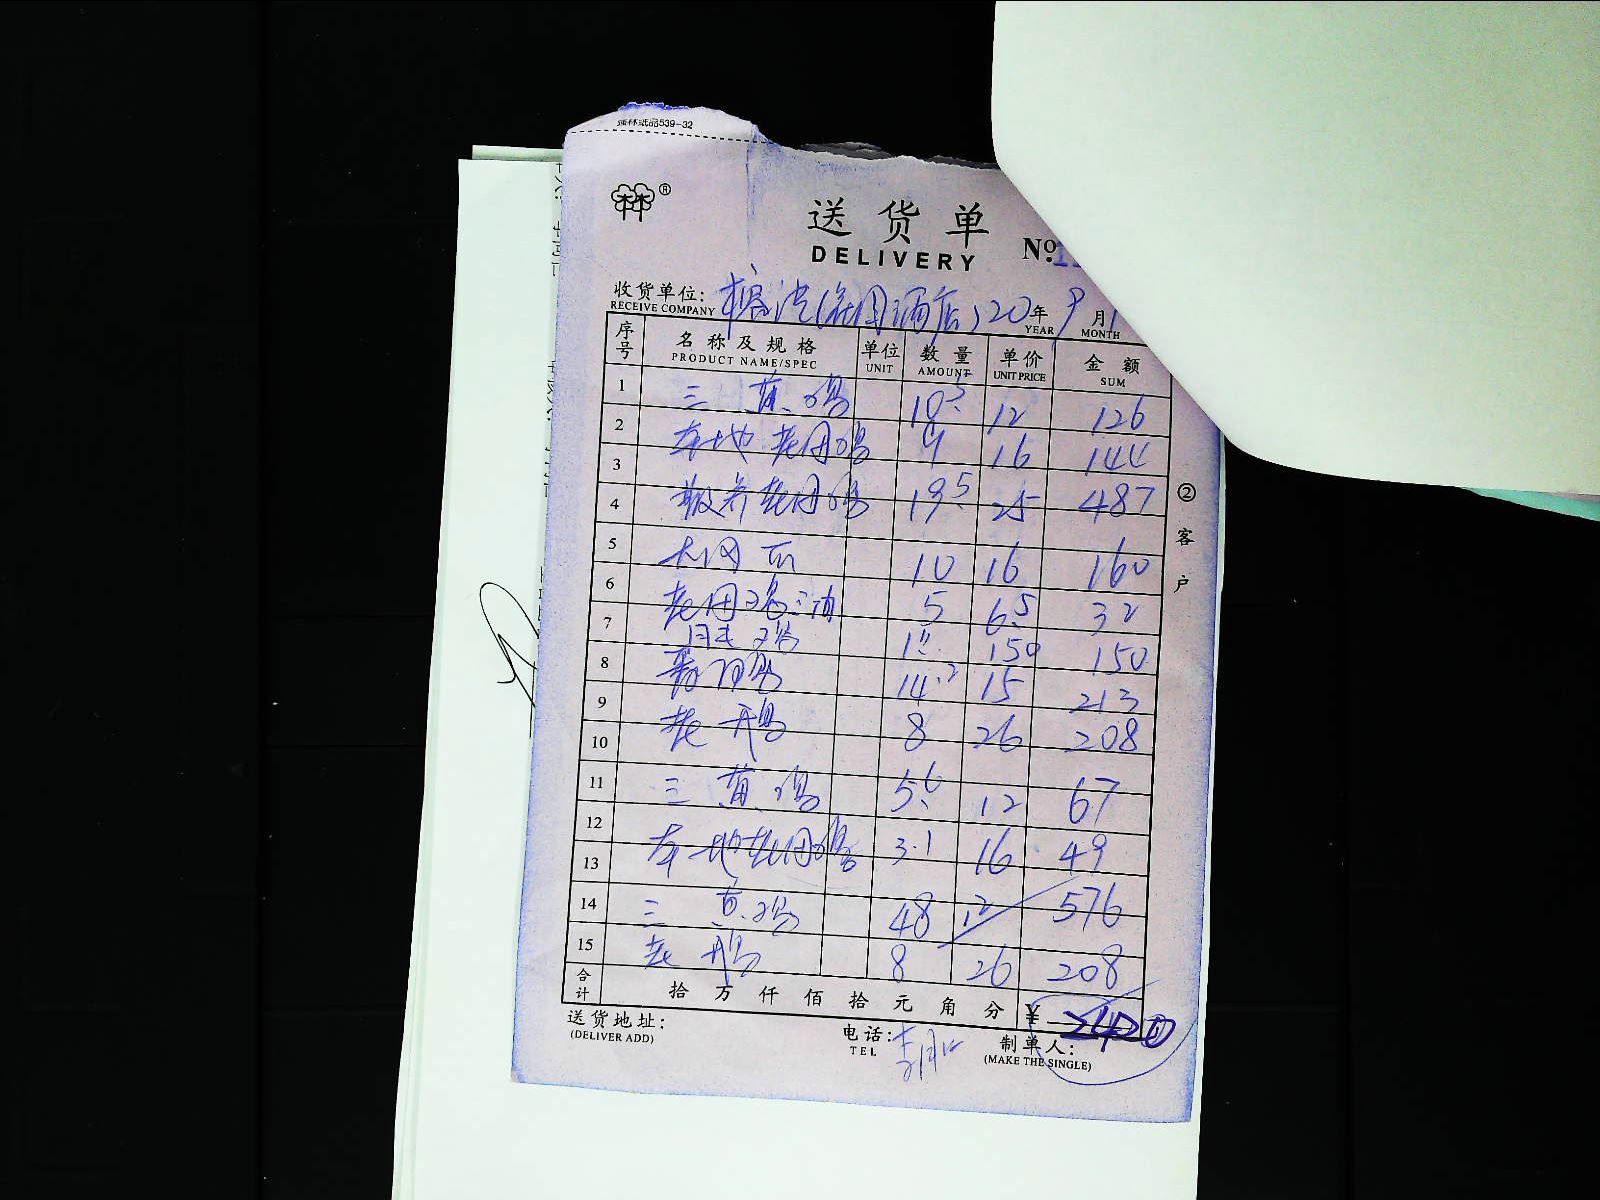 林纸品539-32
林®
送货单
DELIVERY
№
收货单位: 酒店) 20 年 9 月
RECEIVE COMPANY YEAR MONTH
序号 名称及规格 单位 数量 单价 金额
PRODUCT NAME/SPEC UNIT AMOUNT UNIT PRICE SUM
1 三黄鸡 10.5 12 126
2 本地老母鸡 9 16 144
3
4 散养老母鸡 19.5 25 487
5 10 16 160
6 老母鸡油 5 6.5 32
7 1 150 150
8 14.2 15 213
9 老 8 26 208
10
11 三黄鸡 5.6 12 67
12 本地老母鸡 3.1 16 49
13
14 三黄鸡 48 12 576
15 老 8 26 208
合计 拾万仟佰拾元角分 ¥ 2420
② 客户
送货地址: 电话: 制单人:
(DELIVER ADD) TEL (MAKE THE SINGLE)